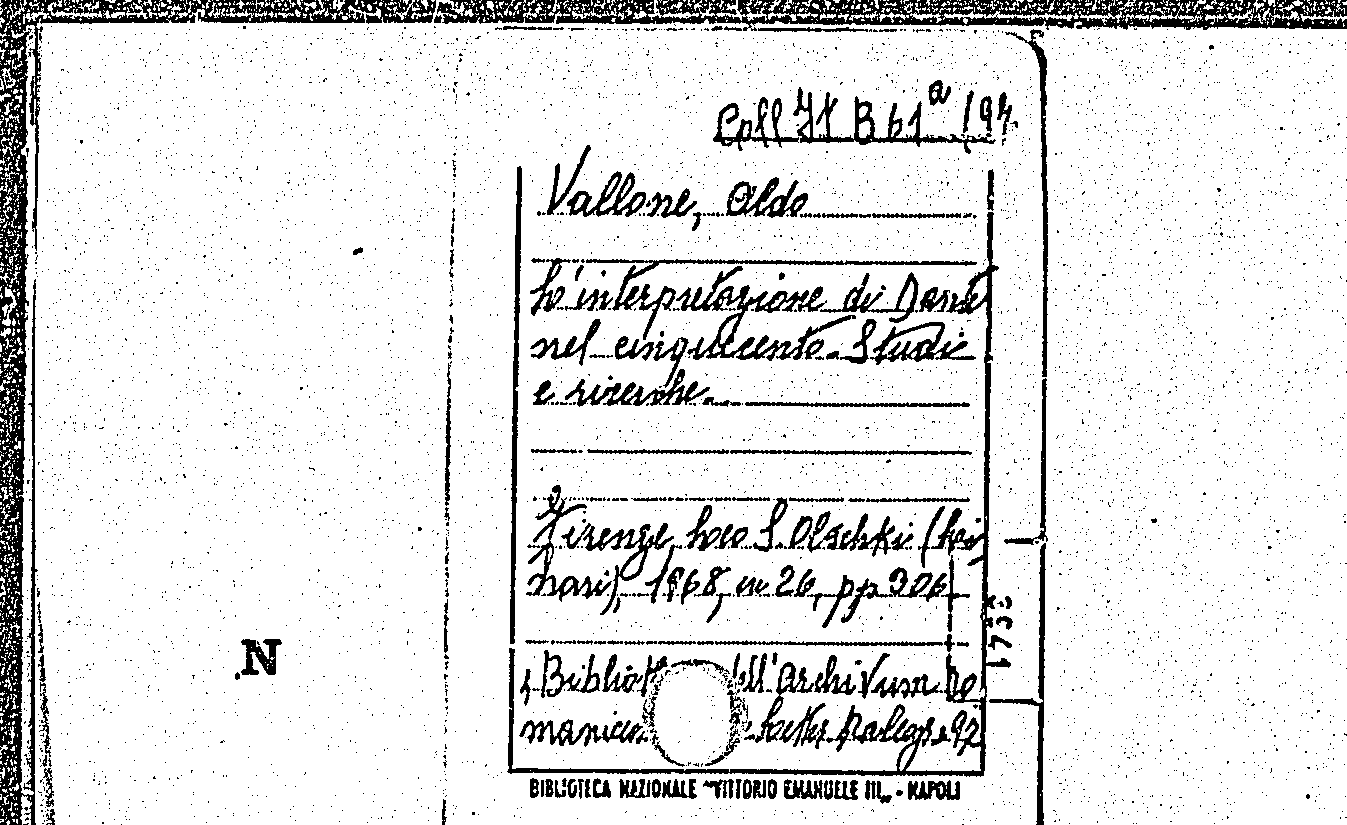 Coll It B 61ª /97.
Vallone, Aldo
L'interpretazione di Dante
nel cinquecento. Studi
e ricerche.
Firenze, Leo S. Olschki (
nari), 1968, in 26, pp 306
N
Bibliot ell'Archivum Ro
manicum Letter. Paleogr. 97
BIBLIOTECA NAZIONALE "VITTORIO EMANUELE III" - NAPOLI